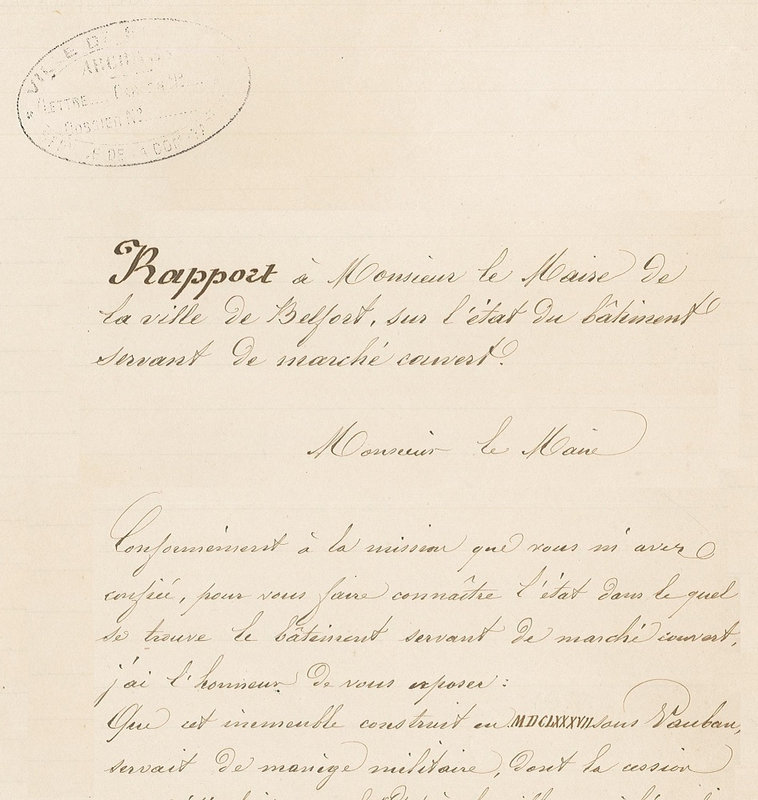 VILLE D
ARCH
LETTRE
DOSSIER N°
DE LA
Rapport à Monsieur le Maire de
la ville de Belfort, sur l'état du bâtiment
servant de marché couvert.
Monsieur le Maire
Conformément à la mission que vous m'avez
confiée, pour vous faire connaître l'état dans le quel
se trouve le bâtiment servant de marché couvert,
j'ai l'honneur de vous exposer :
Que cet immeuble construit en MDCLXXXVII sous Vauban,
servait de manège militaire, dont la cession